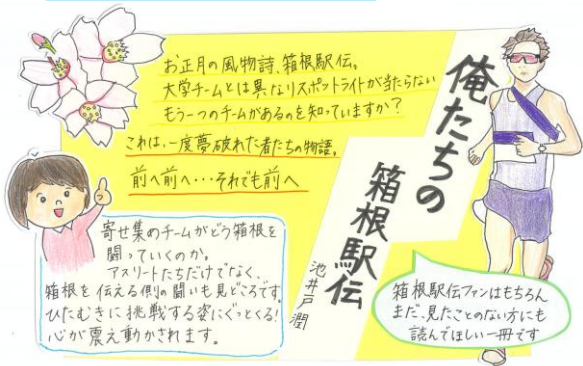 お正月の風物詩、箱根駅伝。
大学チームとは異なりスポットライトが当たらない
もう一つのチームがあるのを知っていますか？
これは、一度夢破れた者たちの物語。
前へ前へ・・・それでも前へ
俺たちの
箱根駅伝
池井戸潤
寄せ集めチームがどう箱根を
闘っていくのか。
アスリートたちだけでなく、
箱根を伝える側の闘いも見どころです。
ひたむきに挑戦する姿にぐっとくる!
心が震え動かされます。
箱根駅伝ファンはもちろん
まだ、見たことのない方にも
読んでほしい一冊です